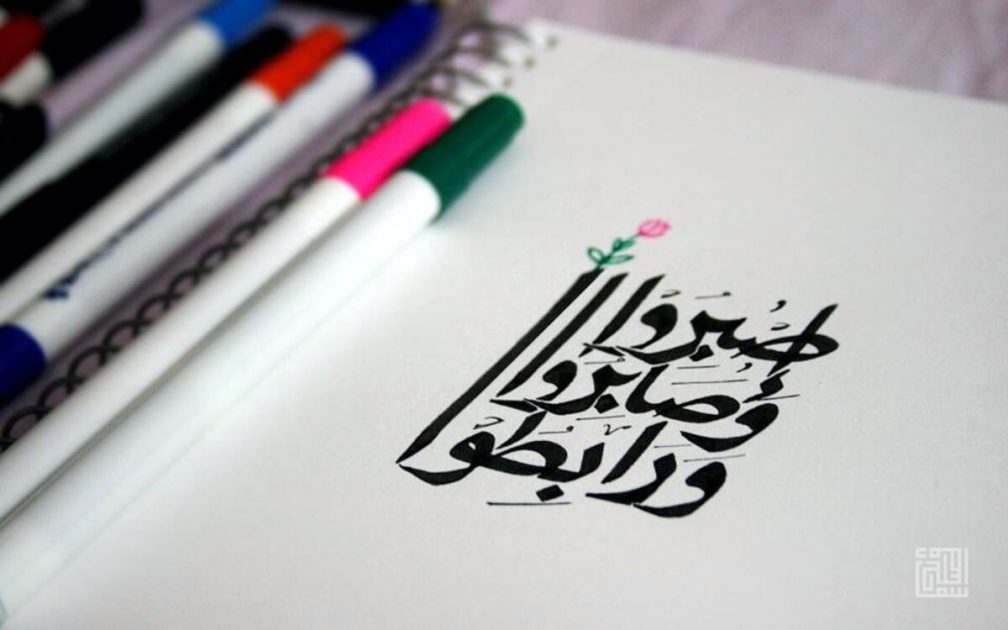 اصبروا
وصابروا
ورابطوا